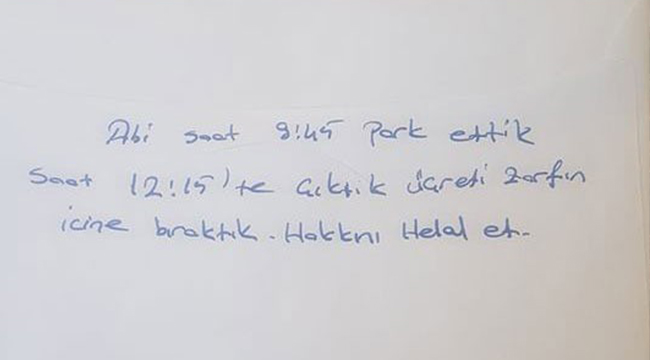 Abi saat 9:45 Park ettik
Saat 12:15'te çıktık ücreti zarfın
içine bıraktık. Hakknı Helal et.